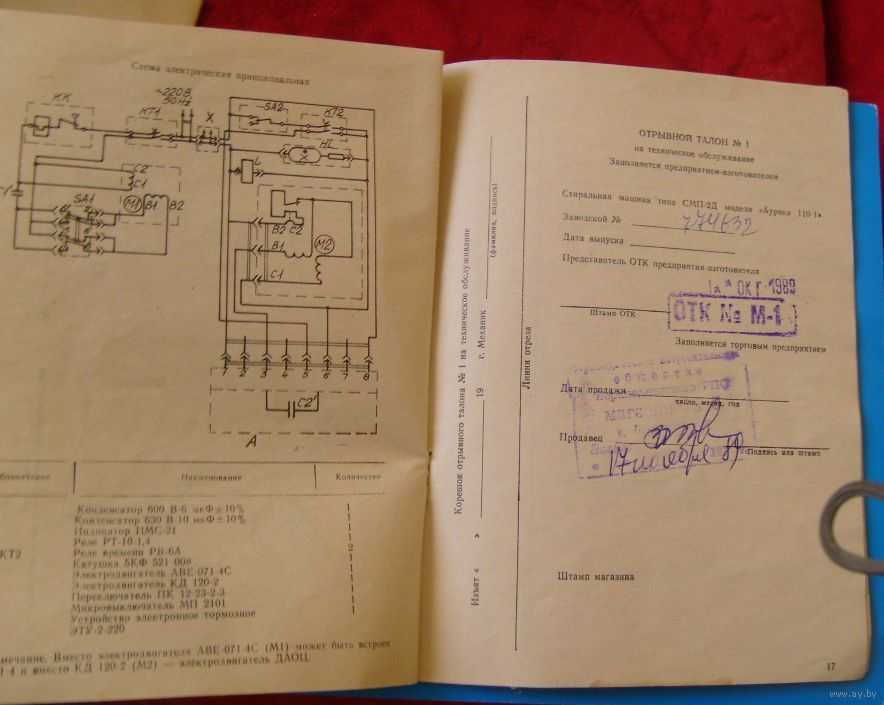 Схема электрическая принципиальная
КК
КТ1
~220В
50Hz
X
SA2
КТ2
HL
L
C2
C1
SA1
M1
B1
B2
B2
C2
B1
M2
C1
1 2 3 4 5 6 7 8
C2'
А
Наименование
Количество
Конденсатор 600 В-6 мкФ±10%
1
Конденсатор 630 В-10 мкФ±10%
1
Индикатор ПМС-21
1
Реле РТ-10-1,4
1
КТ2
Реле времени РВ-6А
2
Катушка 5КФ 521 008
1
Электродвигатель АВЕ-071-4С
1
Электродвигатель КД 120-2
1
Переключатель ПК 12-23-2-3
1
Микровыключатель МП 2101
1
Устройство электронное тормозное
ЭТУ-2-220
мечание. Вместо электродвигателя АВЕ-071-4С (М1) может быть встроен
1-4 и вместо КД 120-2 (М2) — электродвигатель ДАОЦ.
Корешок отрывного талона № 1 на техническое обслуживание
Изъят « » 19 г. Механик
(фамилия, подпись)
Линия отреза
ОТРЫВНОЙ ТАЛОН № 1
на техническое обслуживание
Заполняется предприятием-изготовителем
Стиральная машина типа СМП-2Д модели «Аурика 110-1»
Заводской № 774632
Дата выпуска
Представитель ОТК предприятия-изготовителя
ОКТ 1989
Штамп ОТК
ОТК № М-1
Заполняется торговым предприятием
Дата продажи
число, месяц, год
Продавец
Подпись или штамп
17 ноября 89
Штамп магазина
17
www.ay.by